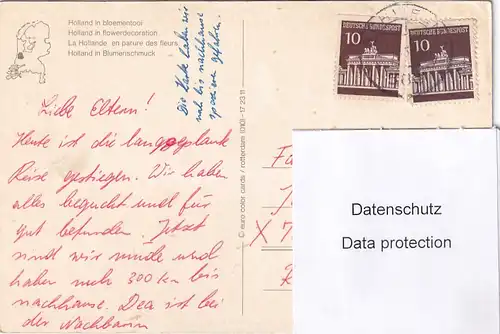 Holland in bloementooi
Holland in flowerdecoration
La Hollande en parure des fleurs
Holland in Blumenschmuck
Die Karte haben wir
noch bis nachhause
spazieren gefahren.
Liebe Eltern!
Heute ist die langgeplante
Reise gestiegen. Wir haben
alles beguckt und für
gut befunden. Jetzt
sind wir müde und
haben noch 300 km bis
nachhause. Dea ist bei
der Nachbarin
© euro color cards / rotterdam (010) - 17 23 11
DEUTSCHE BUNDESPOST
10
DEUTSCHE BUNDESPOST
10
Fa
X 7
Datenschutz
Data protection